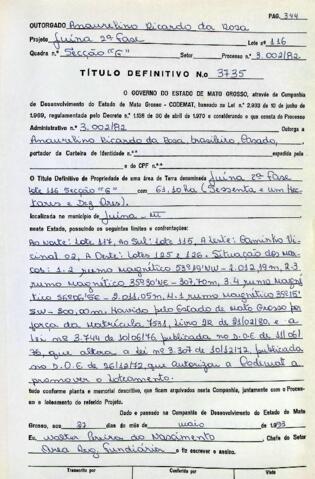 PAG. 344
OUTORGADO Anaurelino Ricardo da Rosa
Projeto Juína 2ª Fase Lote nº 116
Quadra n.º Secção "G" Setor Processo n.º 3.002/82
TÍTULO DEFINITIVO N.o 3735
O GOVERNO DO ESTADO DE MATO GROSSO, através da Companhia
de Desenvolvimento do Estado de Mato Grosso - CODEMAT, baseado na Lei n.º 2.993 de 10 de junho de
1.969, regulamentada pelo Decreto n.º 1.138 de 30 de abril de 1.970 e considerando o que consta do Processo
Administrativo n.º 3.002/82 Outorga a
Anaurelino Ricardo da Rosa, brasileiro, Casado,
portador da Carteira de Identidade n.º expedida pela
e do CPF n.º
o Título Definitivo de Propriedade de uma área de Terra denominada Juína 2ª Fase
lote 116 Secção "G" com 61.10 ha (Sessenta e um Hec
tares e Dez Ares).
localizada no município de Juína - MT
neste Estado, possuindo os seguintes limites e confrontações:
Ao Norte: Lote 117, Ao Sul: Lote 115, A Leste: Caminho Vi
cinal 02, A Oeste: Lotes 125 e 126. Situação dos mar
cos: 1-2 rumo magnético 2.012,19m, 2-3
rumo magnético 307,70m, 3-4 rumo magné
tico 2.011,05m, 4-1 rumo magnético
300,00m. Havido pelo Estado de Mato Grosso por
força da matrícula Livro 28 de e a
lei nº 3.744 de 10/06/76 publicada no D.O.E de 11/06/
76, que altera a lei nº 3.307 de publicada
no D.O.E de 26/12/72, que autoriza a Codemat a
promover o loteamento.
tudo conforme planta e memorial descritivo, que ficam arquivados nesta Companhia, juntamente com o Proces-
so e loteamento do referido Projeto.
Dado e passado na Companhia de Desenvolvimento do Estado de Mato
Grosso, aos dias do mês de maio de
Eu, Walter Pereira do Nascimento, Chefe do Setor
Área Reg. Fundiária o fiz escrever e assino.
Transcrito por Conferido por Visto